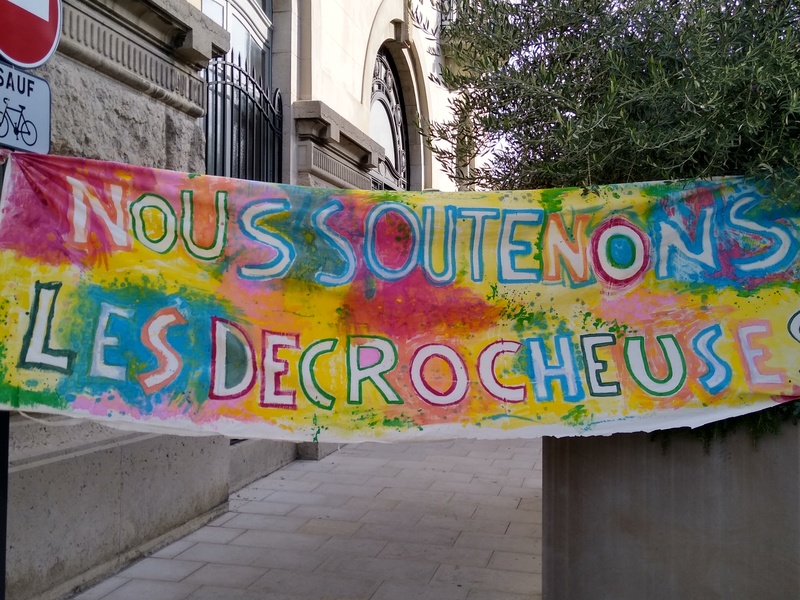 SAUF
NOUS SOUTENONS
LES DECROCHEUSES